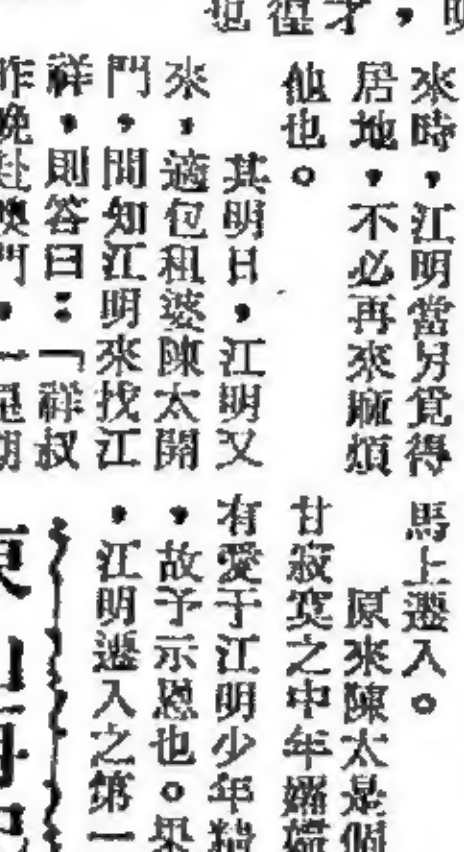 來時，江明當另覓得
居地，不必再來麻煩
他也。
其明日，江明又
來，適包租婆陳太開
門，聞知江明來找江
祥，則答曰：「祥叔
昨晚赴澳門，一星期
馬上遷入。
原來陳太是個
甘寂寞之中年孀
有愛于江明少年精
，故予示恩也。果
，江明遷入之第一